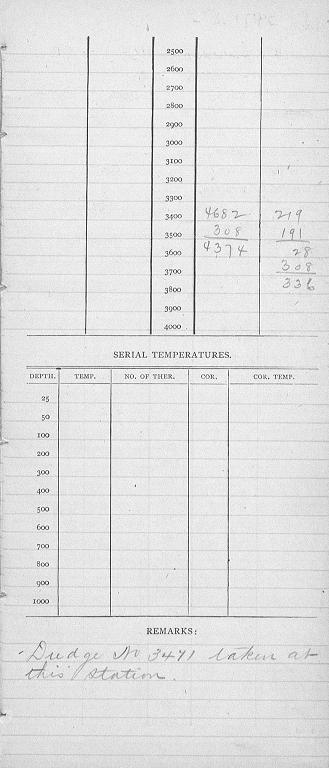 2500
2600
2700
2800
2900
3000
3100
3200
3300
3400 4682 219
3500 308 191
3600 4374 28
3700 308
3800 336
3900
4000
SERIAL TEMPERATURES.
DEPTH. TEMP. NO. OF THER. COR. COR. TEMP.
25
50
100
200
300
400
500
600
700
800
900
1000
REMARKS:
Dredge No 3471 taken at
this station.